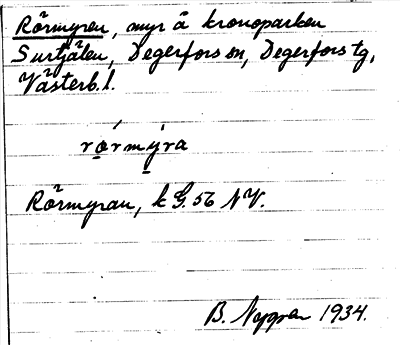 Rörmyren, myr å kronoparken
Surtjälen, Degerfors sn, Degerfors tg,
Västerb. l.
rǿ̣rmỵ́ra
Rörmyran, k G. 56 NV.
B. Nygren 1934.